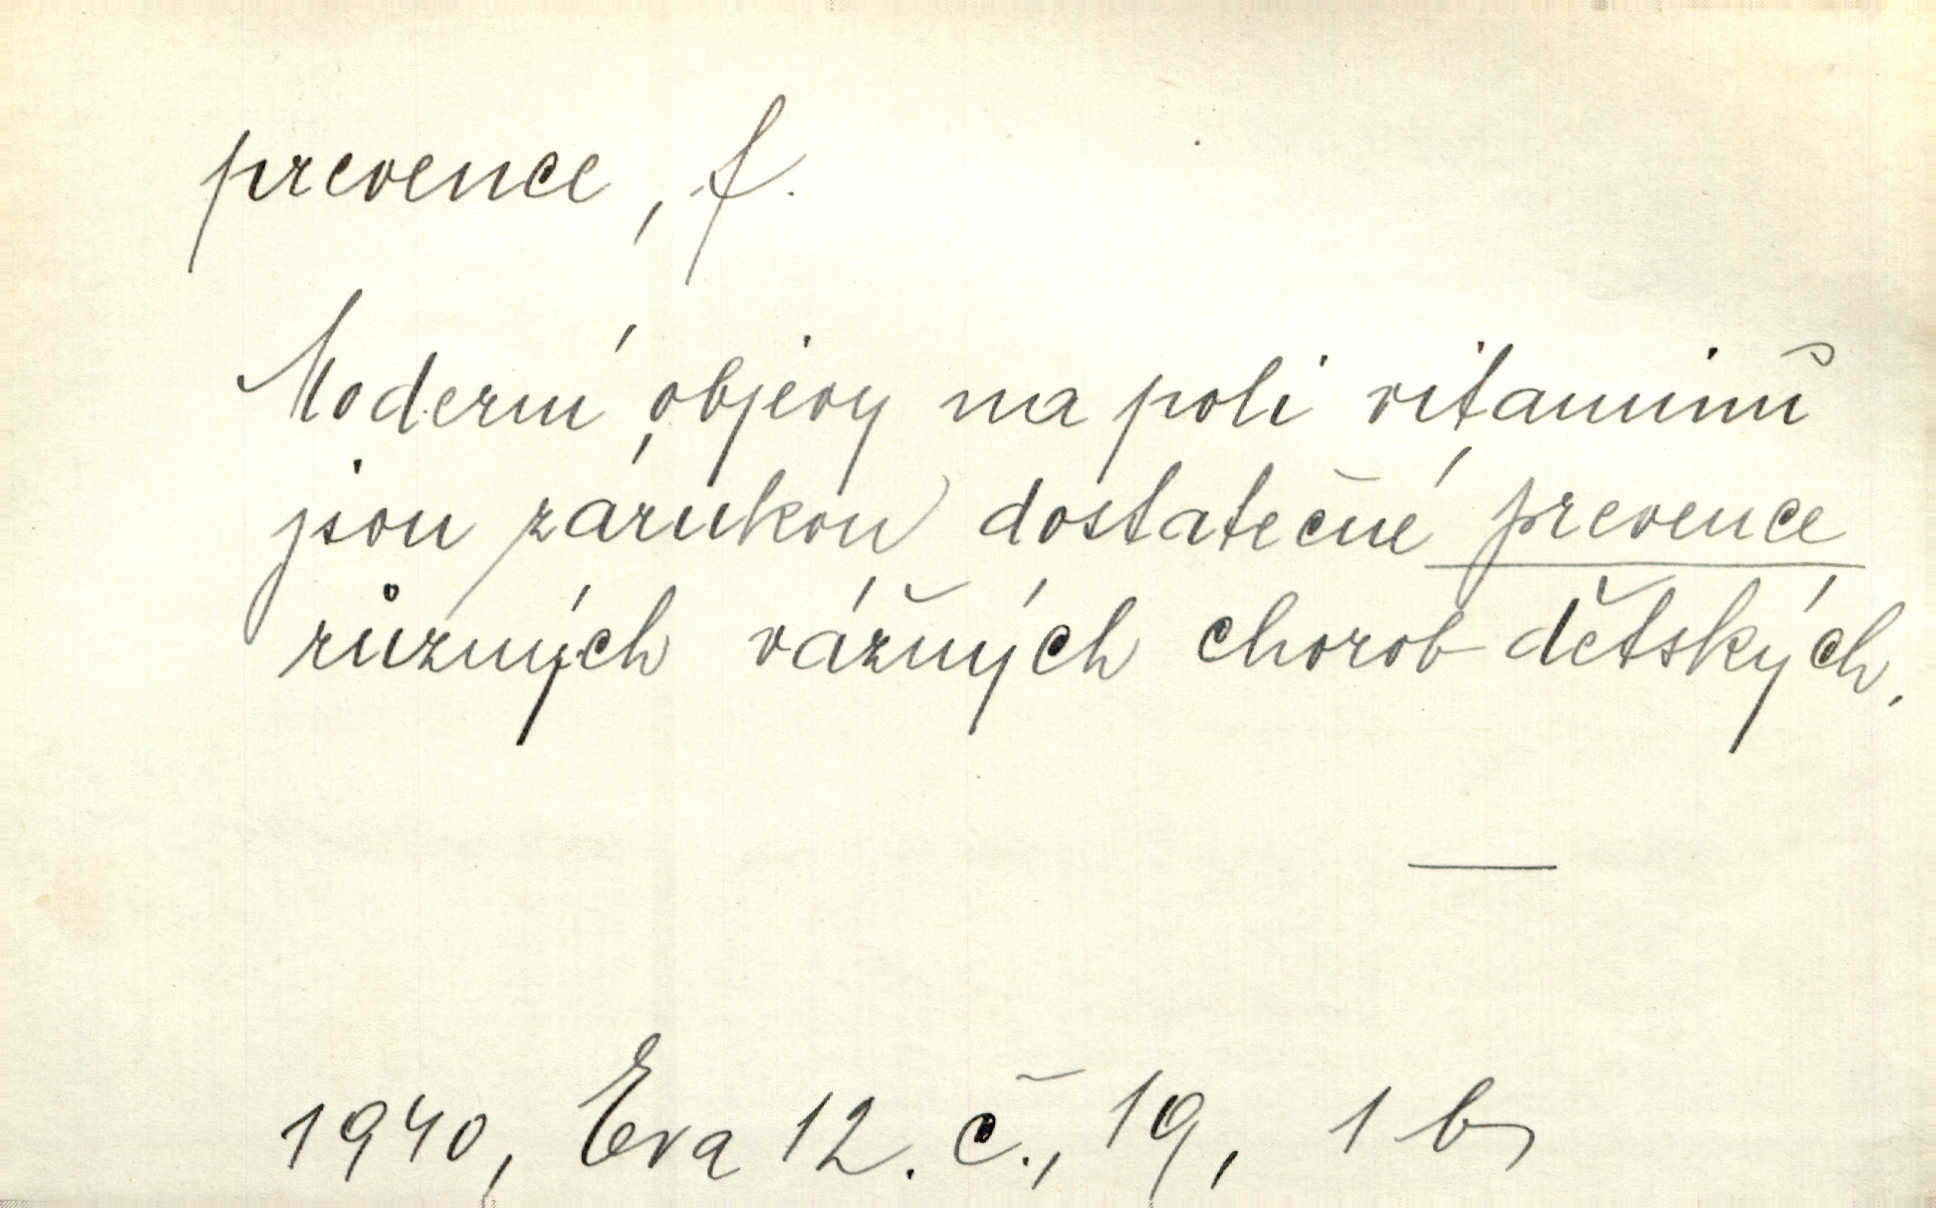 prevence, f.
Moderní objevy na poli vitaminů
jsou zárukou dostatečné prevence
různých vážných chorob dětských.
1940, Eva 12. č., 19, 1 b